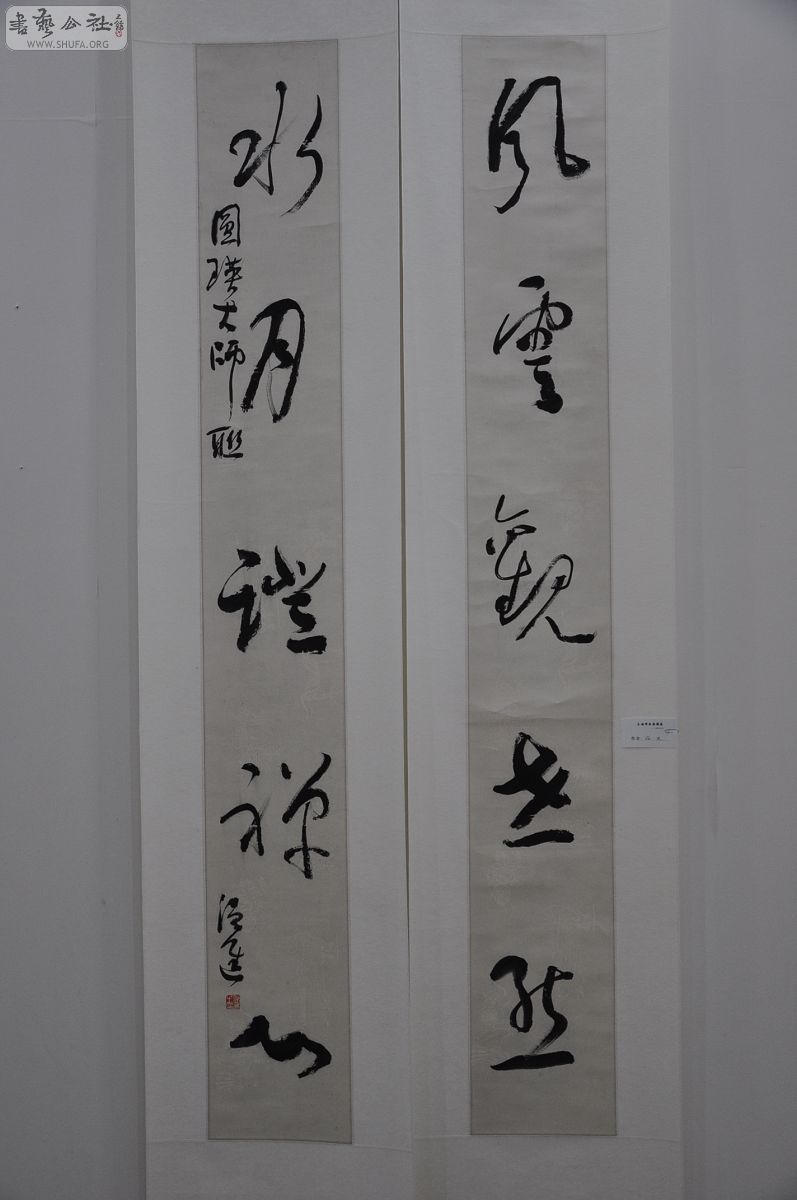 風雲觀世態
水月證禪心
圓瑛大師聯
溫進
書藝公社
WWW.SHUFA.ORG